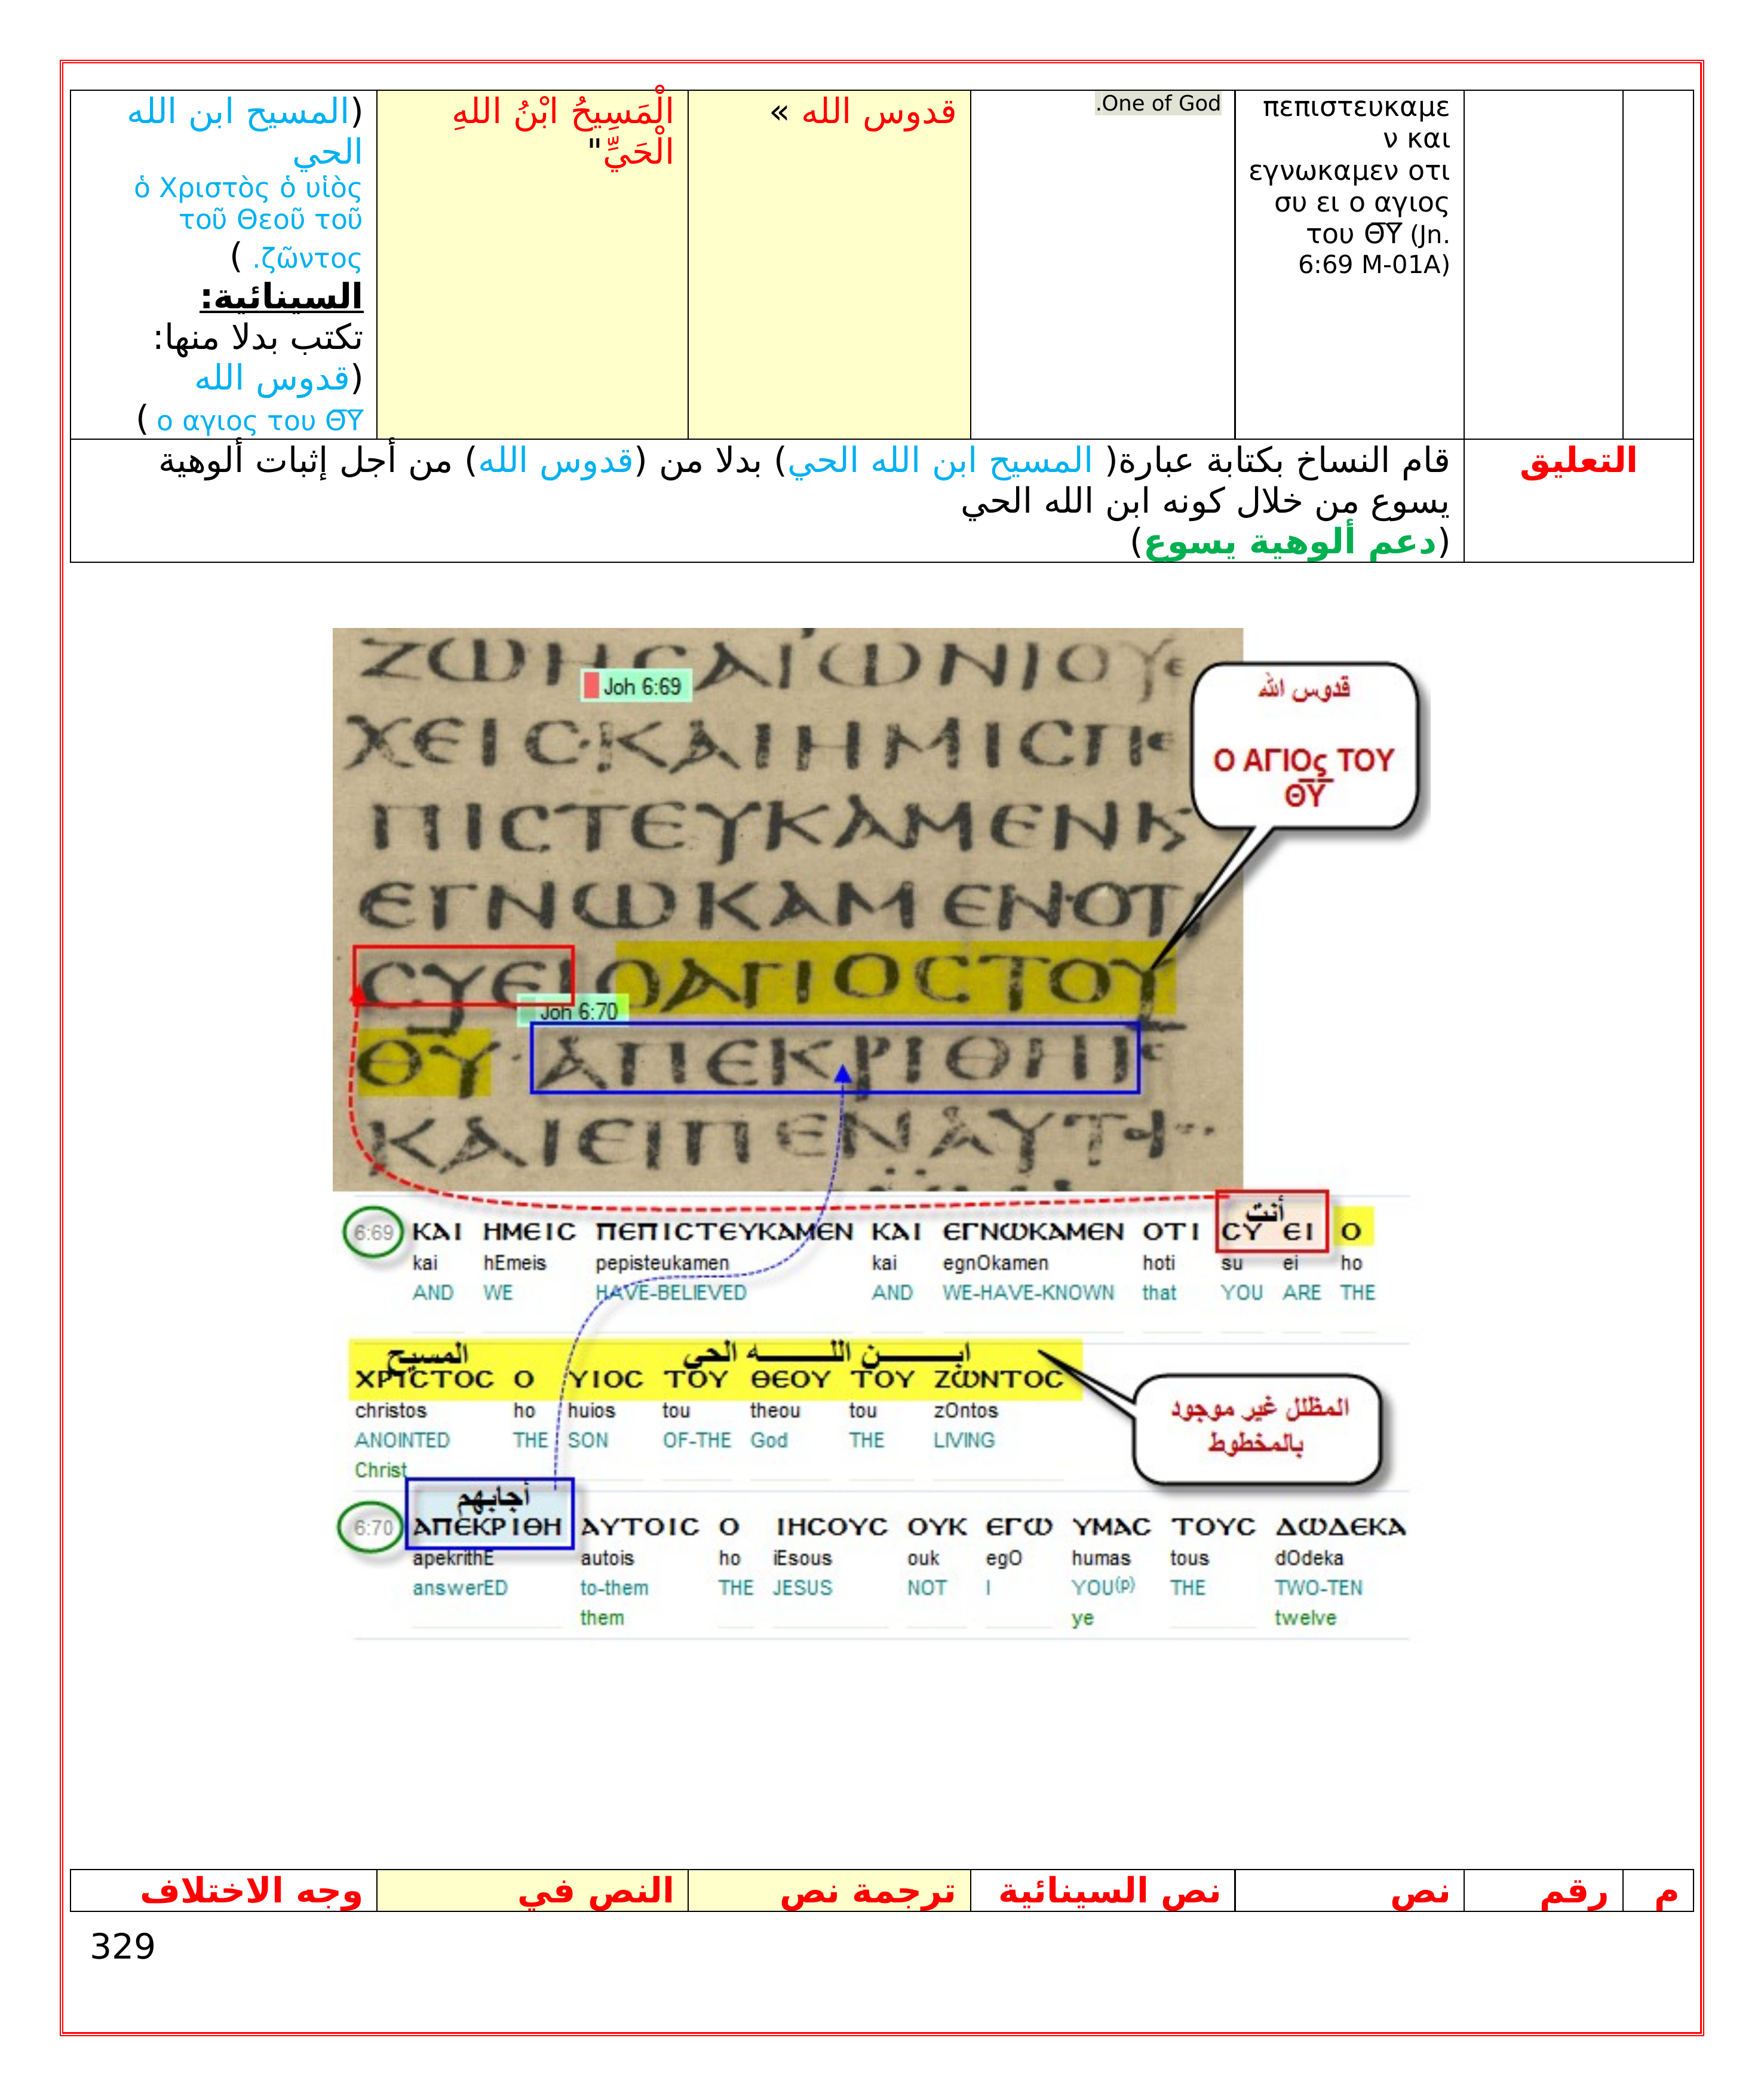 πεπιστευκαμε
ν και
εγνωκαμεν οτι
συ ει ο αγιος
του Θ̅Υ̅ (Jn.
6:69 M-01A)
One of God.
قدوس الله »
الْمَسِيحُ ابْنُ اللهِ
الْحَيِّ"
(المسيح ابن الله
الحي
ὁ Χριστὸς ὁ υἱὸς
τοῦ Θεοῦ τοῦ
ζῶντος. )
السينائية:
تكتب بدلا منها:
(قدوس الله
ο αγιος του Θ̅Υ̅ )
التعليق
قام النساخ بكتابة عبارة( المسيح ابن الله الحي) بدلا من (قدوس الله) من أجل إثبات ألوهية
يسوع من خلال كونه ابن الله الحي
(دعم ألوهية يسوع)
ΖΩΗϹΑΙΩΝΙΟΥΕ
Joh 6:69
ΧΕΙϹ·ΚΑΙΗΜΙϹΠΕ
ΠΙϹΤΕΥΚΑΜΕΝΚ
ΕΓΝΩΚΑΜΕΝΟΤΙ
ϹΥΕΙΟΑΓΙΟϹΤΟΥ
Joh 6:70
ΘΥ·ΑΠΕΚΡΙΘΗΙϹ
ΚΑΙΕΙΠΕΝΑΥΤ
قدوس الله
Ο ΑΓΙΟς ΤΟΥ
Θ̅Υ̅
أنت
6:69 ΚΑΙ ΗΜΕΙϹ ΠΕΠΙϹΤΕΥΚΑΜΕΝ ΚΑΙ ΕΓΝΩΚΑΜΕΝ ΟΤΙ ϹΥ ΕΙ Ο
kai hEmeis pepisteukamen kai egnOkamen hoti su ei ho
AND WE HAVE-BELIEVED AND WE-HAVE-KNOWN that YOU ARE THE
المسيح ابن الله الحي
ΧΡΙϹΤΟϹ Ο ΥΙΟϹ ΤΟΥ ΘΕΟΥ ΤΟΥ ΖΩΝΤΟϹ
christos ho huios tou theou tou zOntos
ANOINTED THE SON OF-THE God THE LIVING
Christ
المظلل غير موجود
بالمخطوط
أجابهم
6:70 ΑΠΕΚΡΙΘΗ ΑΥΤΟΙϹ Ο ΙΗϹΟΥϹ ΟΥΚ ΕΓΩ ΥΜΑϹ ΤΟΥϹ ΔΩΔΕΚΑ
apekrithE autois ho iEsous ouk egO humas tous dOdeka
answerED to-them THE JESUS NOT I YOU(p) THE TWO-TEN
them ye twelve
م رقم نص نص السينائية ترجمة نص النص في وجه الاختلاف
329